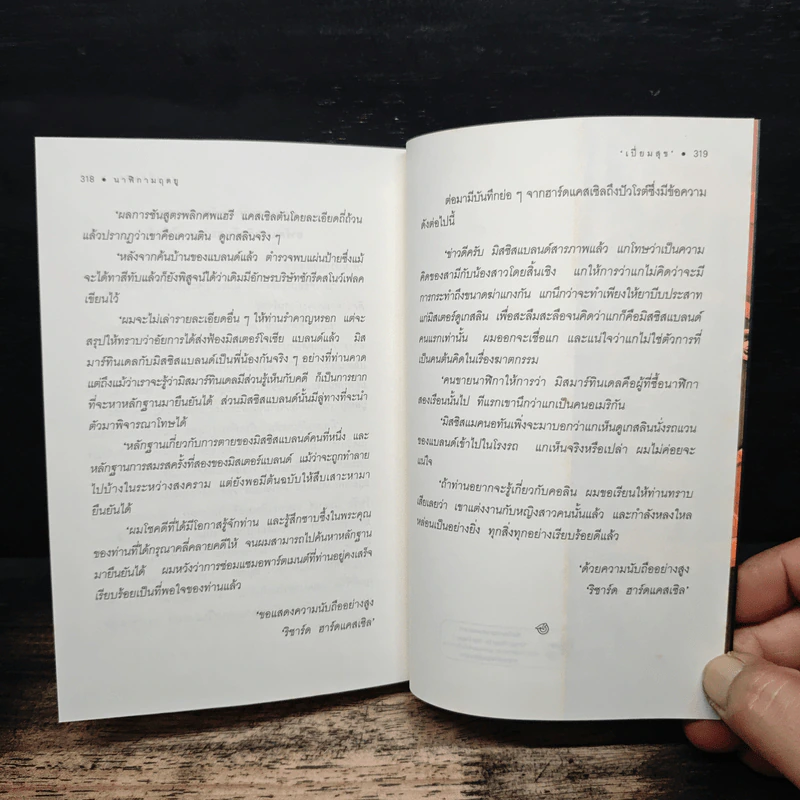 318 ● นาฬิกามฤตยู
'ผลการชันสูตรพลิกศพแฮรี แคสเซิลตันโดยละเอียดถี่ถ้วน
แล้วปรากฏว่าเขาคือเควนติน ดูเกสลินจริง ๆ
'หลังจากค้นบ้านของแบลนด์แล้ว ตำรวจพบแผ่นป้ายซึ่งแม้
จะได้ทาสีทับแล้วก็ยังพิสูจน์ได้ว่าเดิมมีอักษรบริษัทซักรีดสโนว์เฟลค
เขียนไว้
'ผมจะไม่เล่ารายละเอียดอื่น ๆ ให้ท่านรำคาญหรอก แต่จะ
สรุปให้ทราบว่าอัยการได้ส่งฟ้องมิสเตอร์โจเซีย แบลนด์แล้ว มิส
มาร์ทินเดลกับมิสซิสแบลนด์เป็นพี่น้องกันจริง ๆ อย่างที่ท่านคาด
แต่ถึงแม้ว่าเราจะรู้ว่ามิสมาร์ทินเดลมีส่วนรู้เห็นกับคดี ก็เป็นการยาก
ที่จะหาหลักฐานมายืนยันได้ ส่วนมิสซิสแบลนด์นั้นมีลู่ทางที่จะนำ
ตัวมาพิจารณาโทษได้
'หลักฐานเกี่ยวกับการตายของมิสซิสแบลนด์คนที่หนึ่ง และ
หลักฐานการสมรสครั้งที่สองของมิสเตอร์แบลนด์ แม้ว่าจะถูกทำลาย
ไปบ้างในระหว่างสงคราม แต่ยังพอมีต้นฉบับให้สืบเสาะหามา
ยืนยันได้
'ผมโชคดีที่ได้มีโอกาสรู้จักท่าน และรู้สึกซาบซึ้งในพระคุณ
ของท่านที่ได้กรุณาคลี่คลายคดีให้ จนผมสามารถไปค้นหาหลักฐาน
มายืนยันได้ ผมหวังว่าการซ่อมแซมอพาร์ตเมนต์ที่ท่านอยู่คงเสร็จ
เรียบร้อยเป็นที่พอใจของท่านแล้ว
'ขอแสดงความนับถืออย่างสูง
'ริชาร์ด ฮาร์ดแคสเซิล'
"เปี่ยมสุข" ● 319
ต่อมามีบันทึกย่อ ๆ จากฮาร์ดแคสเซิลถึงปัวโรต์ซึ่งมีข้อความ
ดังต่อไปนี้
'ข่าวดีครับ มิสซิสแบลนด์สารภาพแล้ว แกโทษว่าเป็นความ
คิดของสามีกับน้องสาวโดยสิ้นเชิง แกให้การว่าแกไม่คิดว่าจะมี
การกระทำถึงขนาดฆ่าแกงกัน แกนึกว่าจะทำเพียงให้ยาบีบประสาท
แก่มิสเตอร์ดูเกสลิน เพื่อสะลืมสะลือจนคิดว่าแกก็คือมิสซิสแบลนด์
คนแรกเท่านั้น ผมออกจะเชื่อแก และแน่ใจว่าแกไม่ใช่ตัวการที่
เป็นคนต้นคิดในเรื่องฆาตกรรม
'คนขายนาฬิกาให้การว่า มิสมาร์ทินเดลคือผู้ที่ซื้อนาฬิกา
สองเรือนนั้นไป ทีแรกเขานึกว่าแกเป็นคนอเมริกัน
'มิสซิสแมคนอทันเพิ่งจะมาบอกว่าแกเห็นดูเกสลินนั่งรถแวน
ของแบลนด์เข้าไปในโรงรถ แกเห็นจริงหรือเปล่า ผมไม่ค่อยจะ
แน่ใจ
'ถ้าท่านอยากจะรู้เกี่ยวกับคอลิน ผมขอเรียนให้ท่านทราบ
เสียเลยว่า เขาแต่งงานกับหญิงสาวคนนั้นแล้ว และกำลังหลงใหล
หล่อนเป็นอย่างยิ่ง ทุกสิ่งทุกอย่างเรียบร้อยดีแล้ว
'ด้วยความนับถืออย่างสูง
'ริชาร์ด ฮาร์ดแคสเซิล'